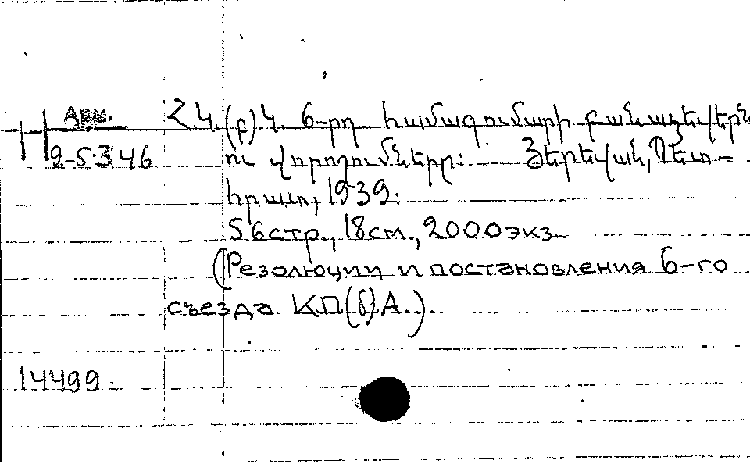 Арм.
2-5.346
ՀԿ(բ)Կ 6-րդ համագումարի բանաձևերն
ու վորոշումները: — Յերեվան, Պետ-
հրատ, 1939:
56 стр., 18 см., 2000 экз.
(Резолюции и постановления 6-го
съезда КП(б)А.).
14499